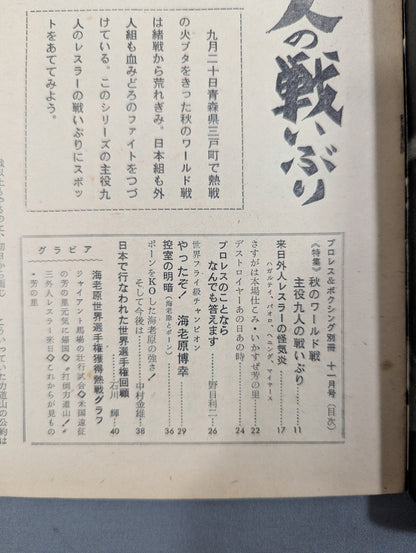 人の戦いぶり
九月二十日青森県三戸町で熱戦
の火ブタをきった秋のワールド戦
は緒戦から荒れぎみ。日本組も外
人組も血みどろのファイトをつづ
けている。このシリーズの主役九
人のレスラーの戦いぶりにスポッ
トをあててみよう。
プロレス&ボクシング別冊 十一月号〈目次〉
《特集》秋のワールド戦
主役九人の戦いぶり……11
来日外人レスラーの怪気炎……17
ハガルティ、パオロ、ヘニング、マイヤース
さすがは本場仕こみ・いかすぜ芳の里……22
デストロイヤーあの日あの時……24
プロレスのことなら
なんでも答えます……野目利二……26
世界フライ級チャンピオン
やったぞ! 海老原博幸……29
控室の明暗(海老原とポーン)……36
ポーンをKOした海老原の強さ!
そして今後は……中村金雄……38
日本で行なわれた世界選手権回顧
……石川 輝……40
グラビア
海老原世界選手権獲得熱戦グラフ
ジャイアント馬場の壮行試合◇米国遠征
の芳の里元気に帰国◇“打倒力道山!”
三外人レスラー来日◇これからが見もの
“芳の里